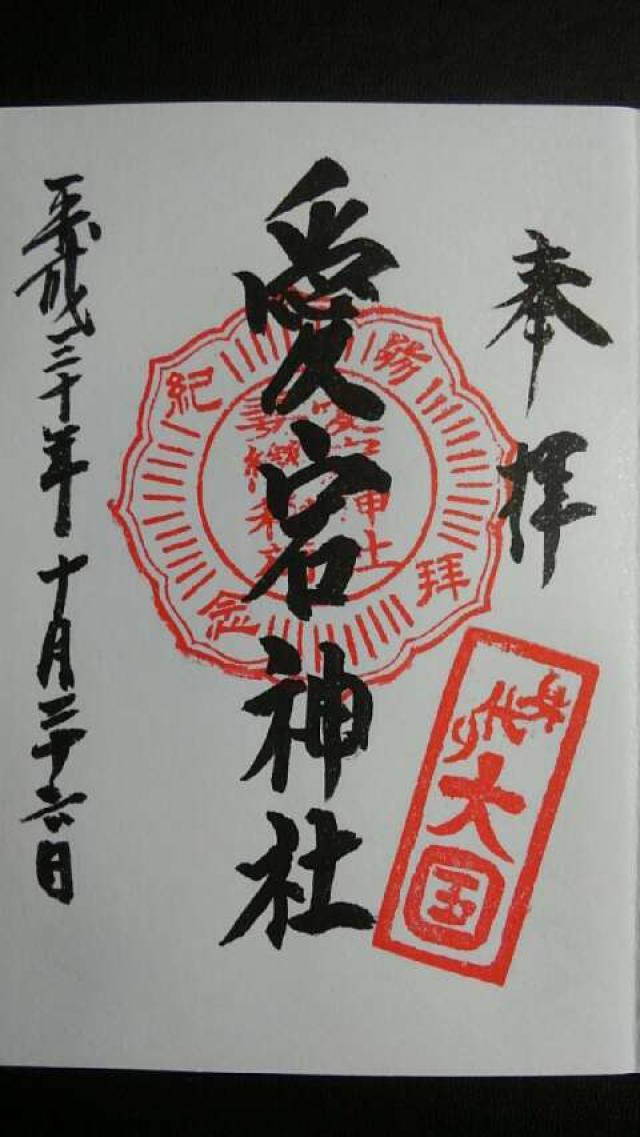 奉拝
愛宕神社
平成三十年十月二十六日
参拝紀念
身代り大国